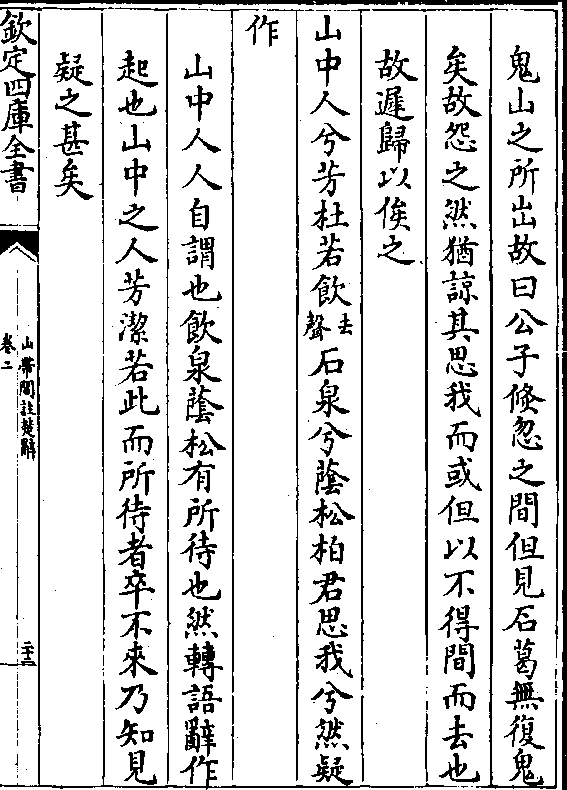 鬼山之所出故曰公子倏忽之間但見石葛無復鬼
矣故怨之然猶諒其思我而或但以不得間而去也
故遲歸以俟之
山中人兮芳杜若飲去聲石泉兮蔭松柏君思我兮然疑
作
山中人人自謂也飲泉蔭松有所待也然轉語辭作
起也山中之人芳潔若此而所待者卒不來乃知見
疑之甚矣
欽定四庫全書
山帶閣註楚辭
卷二
二十二